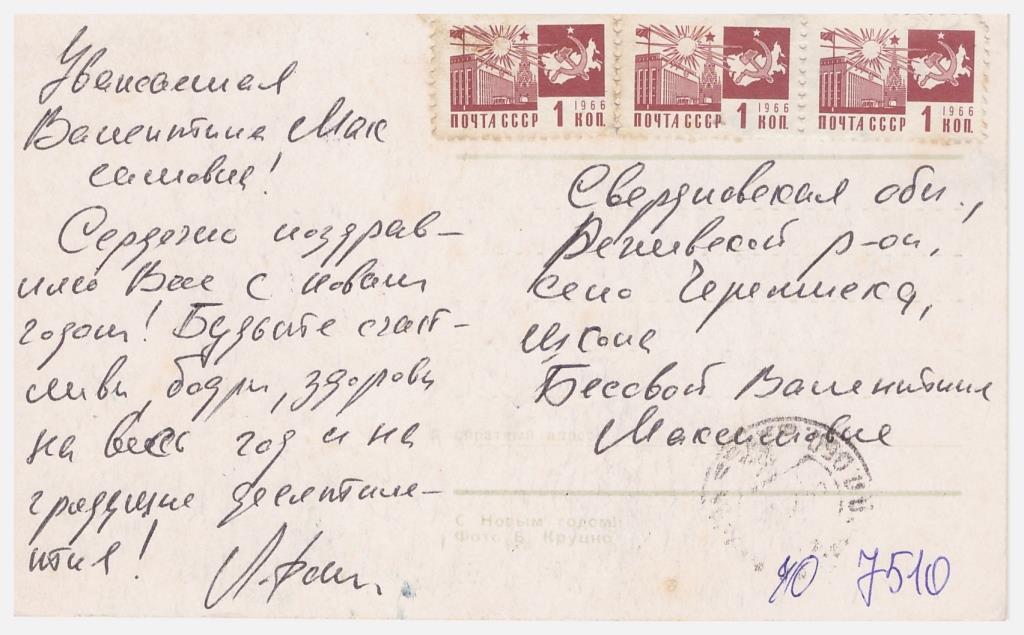 Уважаемая
Валентина Мак
симовна!
Сердечно поздрав-
ляю Вас с новым
годом! Будьте счаст-
ливы, бодры, здоровы
на весь год и на
грядущие десятиле-
тия!
ПОЧТА СССР 1 КОП. 1966
ПОЧТА СССР 1 КОП. 1966
ПОЧТА СССР 1 КОП. 1966
Свердловская обл.,
Режевской р-он,
село Черемисска,
школа
Бесовой Валентине
Максимовне
обратный адрес
С Новым годом!
Фото Б. Круцко
Ю 7510